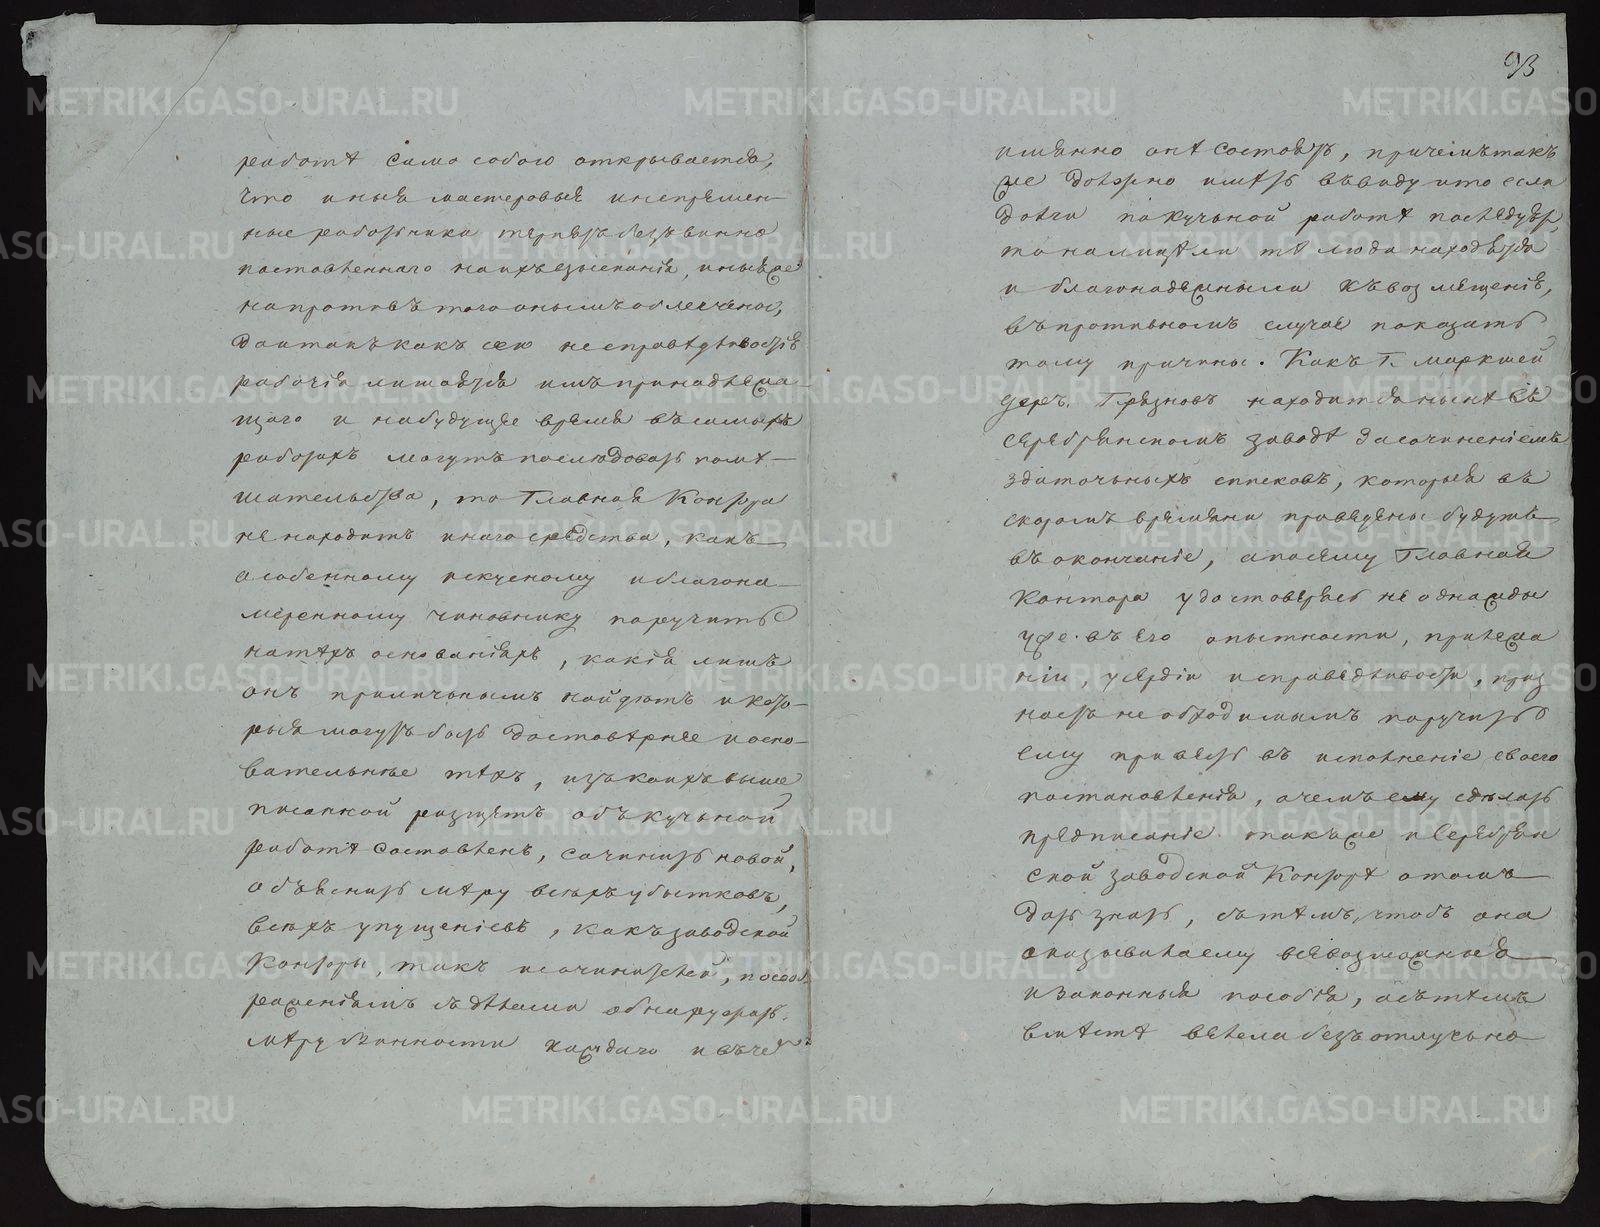 работѣ само собою открывается,
что иныя мастеровыя и непремен-
ные работники терпятъ безвинно
поставленнаго на ихъ взысканія, иныеже
напротивъ того онымъ облегчены,
Да и такъ какъ сею несправѣдливостiю
рабочія лишаются имъ принадлежа-
щаго и набудущее время въ самыхъ
работахъ могутъ последовать помѣ-
шательства, то Главная Контора
не находитъ инаго средства, какъ
особенному искусному и благона-
меренному чиновнику поручить
на тѣхъ основаніяхъ, какія лишь
онъ приличнымъ найдютъ и кото-
рыя могутъ быть достовѣрнее и осно-
вательнѣе тѣхъ, изъ коихъ выше
писанной разщетъ объ кучьной
работѣ составленъ, сочинить новой,
объяснить мѣру всехъ убытковъ,
всѣхъ упущеніевъ, какъ заводской
Конторы, такъ и сочинителей, по сооб
раженіямъ съ дѣлами обнаружить
мѣру винности каждаго и въ чем
93
имянно онѣ состоятъ, причемъ так
же должно имѣть въ виду что если
долги по кучьной работѣ последуютъ,
то на лицѣ ли тѣ люди находятся
и благонадежны ли къ возмещенію,
въ противномъ случаѣ показать
тому причины. Какъ Г. маркшей
деръ Грязновъ находится нынѣ въ
Серебрянскомъ заводѣ за сочиненіемъ
здаточныхъ списковъ, которыя въ
скоромъ времяни приведены будутъ
въ окончаніе, а посему Главная
Контора удостоверясь не однажды
уже въ его опытности, прилежа
ніи, усердіи и справедливости, приз
наетъ необходимымъ поручить
ему привесть въ исполненіе своего
постановленія, о чемъ ему сдѣлать
предписаніе также и Серебрян
ской заводской Конторѣ о томъ
дать знать, съ тѣмъ, чтобъ она
оказывала ему всевозможныя
и законныя пособія, а съ тѣмъ
вмѣстѣ велела безотлучно